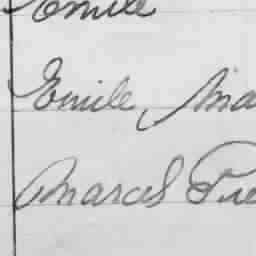 Emile
Emile, Ma
Marcel Pie